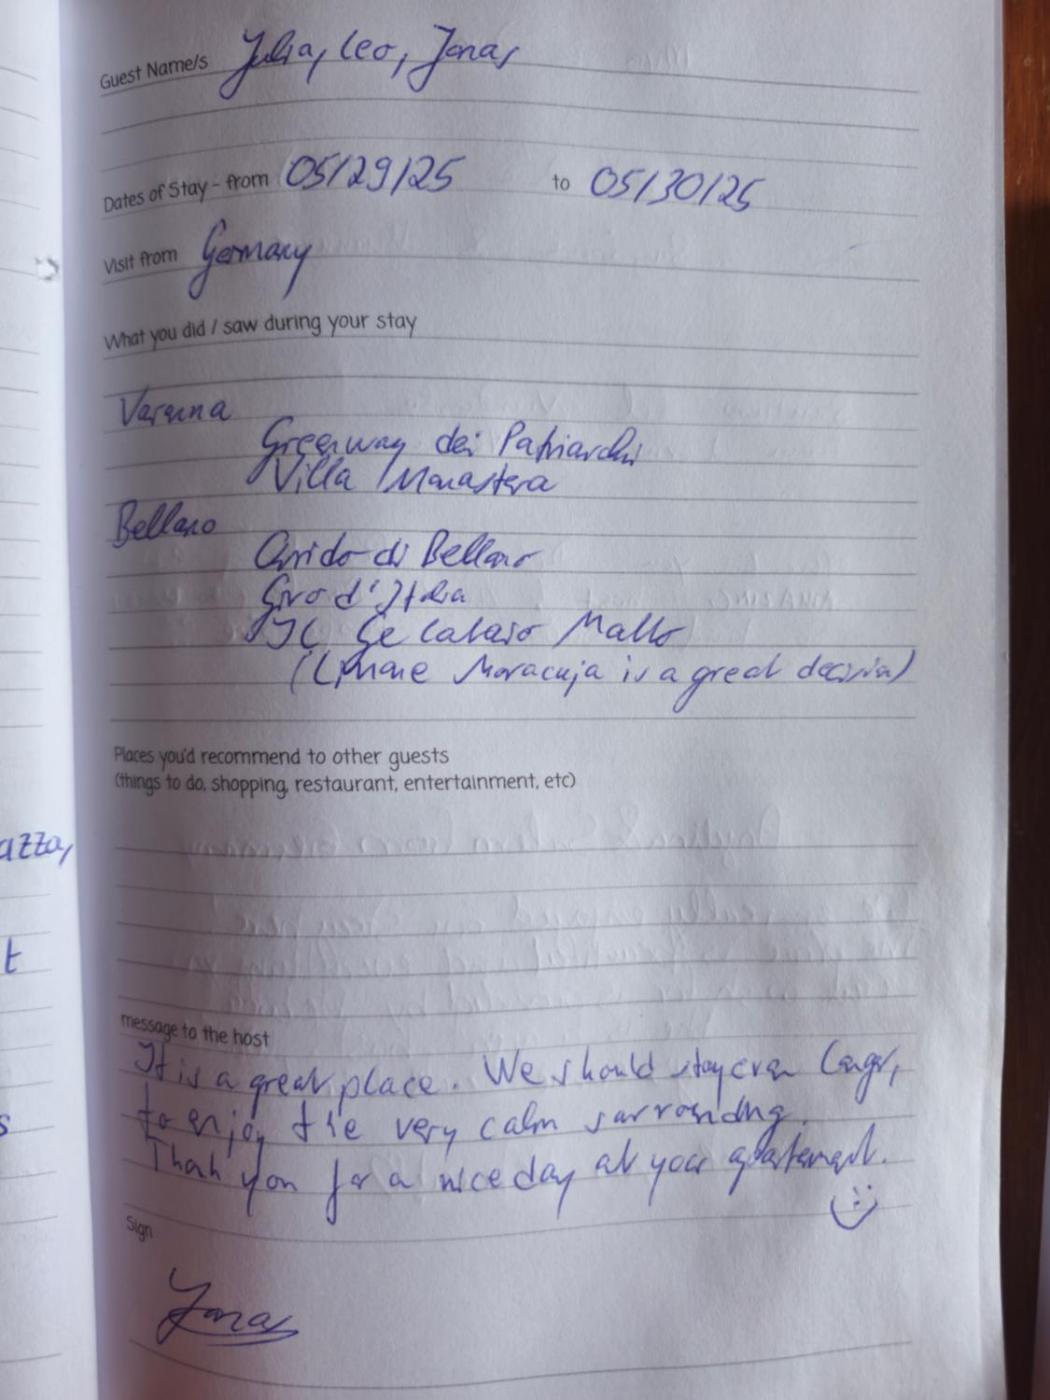 Guest Name/s Julia, Leo, Jonas
Dates of Stay - from 05/29/25 to 05/30/25
Visit from Germany
What you did / saw during your stay
Varenna
Greenway dei Patriarchi
Villa Monastero
Bellano
Orrido di Bellano
Giro d'Italia
Il Gelataio Matto
(Limone Moracuja is a great decision)
Places you'd recommend to other guests
(things to do, shopping, restaurant, entertainment, etc)
message to the host
It is a great place. We should stay even longer,
to enjoy the very calm surrounding.
Thank you for a nice day at your apartement.
Sign
Jonas
azza,
t
s